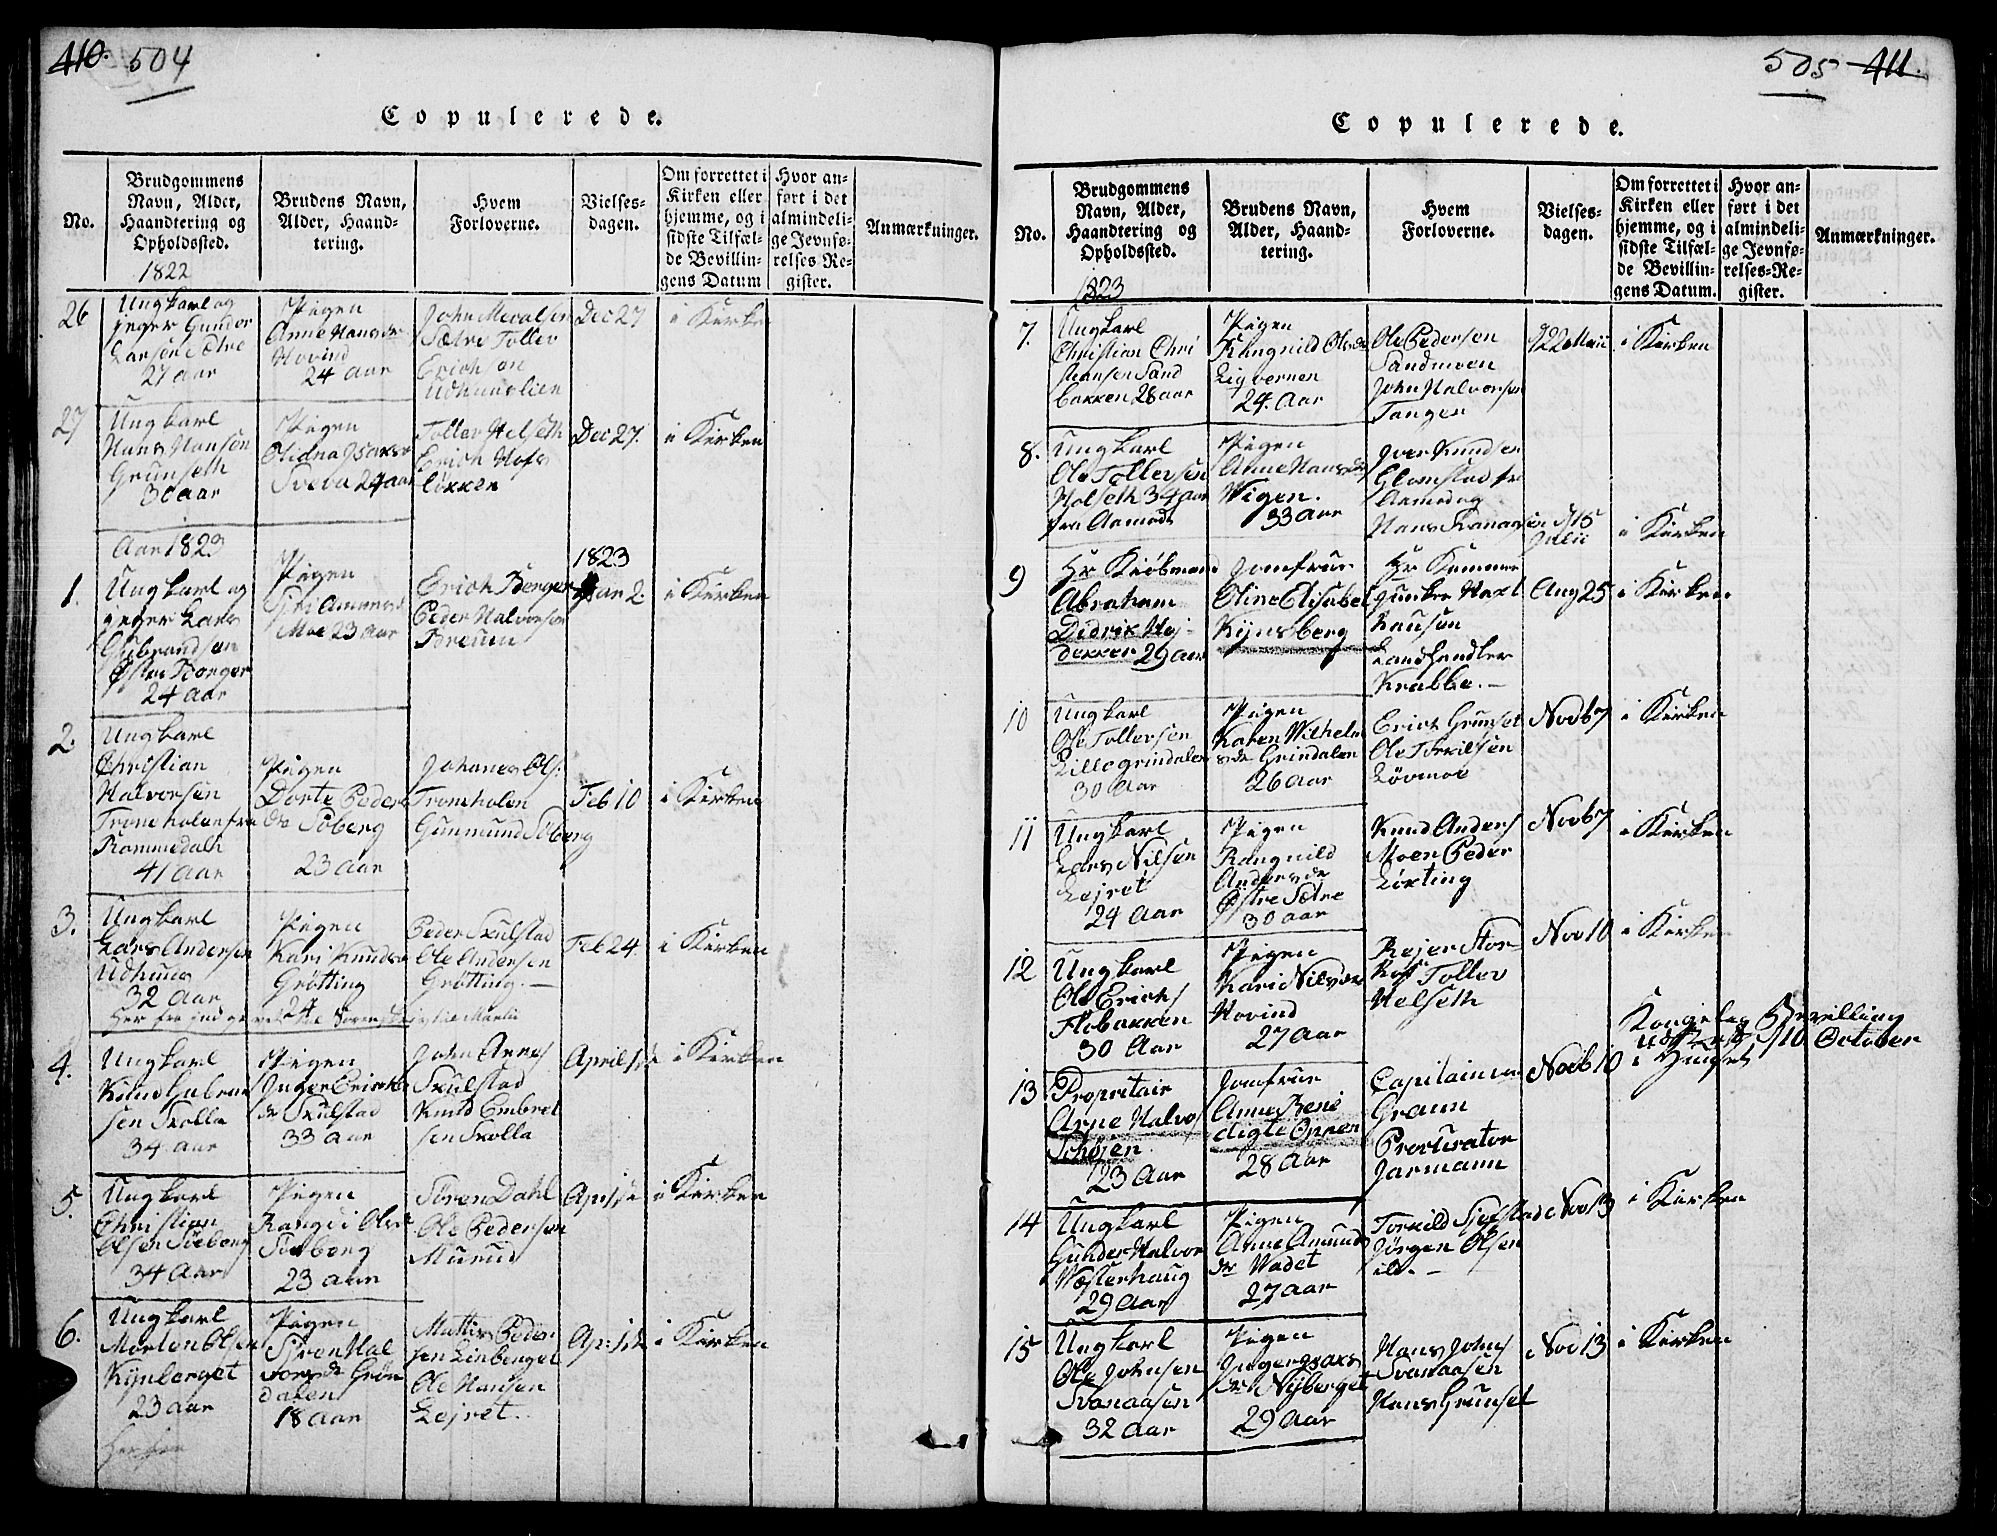 410. 504
Copulerede.
No.
Brudgommens
Navn, Alder,
Haandtering og
Opholdssted.
Brudens Navn,
Alder, Haand-
tering.
Hvem
Forloverne.
Vielses-
dagen.
Om forrettet i
Kirken eller
hjemme, og i
sidste Tilfæl-
de Bevillin-
gens Datum
Hvor an-
ført i det
almindeli-
ge Jevnfø-
relses Re-
gister.
Anmærkninger.
1822
26
Ungkarl og
jeger Gunder
Larsen Sætre
27 aar
Pigen
Anne Hansdr
Hovind
24 aar
Sætre Toller
Erichsen
Udhuuslien
Dec 27
i Kirke
27
Ungkarl
Hans Hansen
Grunseth
30 aar
Pigen
Sveen 24 aar
Toller Helseth
Erich Hofs
løkken
Dec 27.
i Kirken
Aar 1823
1823
1.
Ungkarl og
jeger Lars
Gulbrandsen
Østre Berger
24 aar
Pigen
Moe 23 aar
Erich Berger
Peder Halvorsen
Breuen
Jan 2.
i Kirken
2.
Ungkarl
Christian
Halvorsen
41 aar
Pigen
Dorte Peders
dr Søberg
23 aar
Johanes Ols:
Gunmund Søberg
Feb 10
i Kirken
3.
Ungkarl
Lars Andersen
Udhuus
32 aar
Pigen
Kari Knuds
Grøtting
24
Peder Skulstad
Ole Andersen
Grøtting. —
Feb 24
i Kirken
4.
Ungkarl
sen Skolla
34 aar
Pigen
Inger Erichs
dr Skulstad
33 aar
John Arnes
Skulstad
Knud Embret
sen Skolla
April
i Kirken
5.
Ungkarl
Christian
Olsen Søeberg
34 Aar
Pigen
Søeberg
23 aar
Søren Dahl
Ole Pedersen
Murud
i Kirken
6.
Ungkarl
Morten Olsen
Kynberget
23 aar
Pigen
Siron Hal
vorsdr Grøn
dalen
18 aar
Mattis Peder
sen Linberget
Ole Hansen
Lejret.
i Kirken
505 411.
Copulerede.
No.
Brudgommens
Navn, Alder,
Haandtering og
Opholdssted.
Brudens Navn,
Alder, Haand-
tering.
Hvem
Forloverne.
Vielses-
dagen.
Om forrettet i
Kirken eller
hjemme, og i
sidste Tilfæl-
de Bevillin-
gens Datum.
Hvor an-
ført i det
almindeli-
ge Jevnfø-
relses-Re-
gister.
Anmærkninger.
1823
7.
Ungkarl
Christian Chri
stiansen Sand
bakken 28 aar
Pigen
Rangnild Olsdr
24. Aar
Ole Pedersen
Sandmoen
John Halvorsen
Tangen
22 Maii
i Kirken
8.
Ungkarl
Ole Tollersen
Helseth 34 aar
fra Aamodt
Pigen
Anne Hansdr
Wigen.
33 Aar
Iver Knudsen
Glomstad fr
Aamodog
15
Julii
i Kirken
9
Hr Kiøbmand
Abraham
Didrik Hoj
dekker 29 aar
Jomfrue
Oline Elisabet
Kynsberg
Hr Kammer
Junker Haxt
hausen
Landhandler
Krabbe. —
Aug 25
i Kirken
10
Ungkarl
Ole Tollersen
Lillegrindalen
30 aar
Pigen
Karen Wilhelm
sdr Grindalen
26 Aar
Erich Grunset
Ole Torkilsen
Løvmoe
Novb 7
i Kirken
11
Ungkarl
Lars Nilsen
Lejret
24 Aar
Pigen
Rangnild
Andersdr
Østre Sætre
30 aar
Knud Anders
Moen Peder
Løkting
Novb 7
i Kirken
12
Ungkarl
Ole Erichs
Flobakken
30 Aar
Pigen
Karie Nilsdr
Hovind
27 Aar
Rejer Stor-
Hof Toller
Helseth
Nov 10
i Kirken
13
Propritair
Arne Halvos
Schøjen
23 Aar
Jomfrue
Anne Bene
digte Opsen
28 Aar
Capitain von
Graun
Procurator
Jarmann
Novb 10
Kongelig Bevilling
udstedt d 10 October
i Huuset
14
Ungkarl
Gunder Halvor
Wæsterhaug
29 Aar
Pigen
Anne Amunds
dr Wadet
27 Aar
Torkild Sjøstad
Jørgen Olsen
ib. —
Nov 13
i Kirken
15
Ungkarl
Ole Johnsen
Svanaasen
32 Aar
Pigen
Inger Isaks
dr Nyberget
29 Aar
Hans Johns
Svanaasen
Hans Grunset
Nov 13
i Kirken